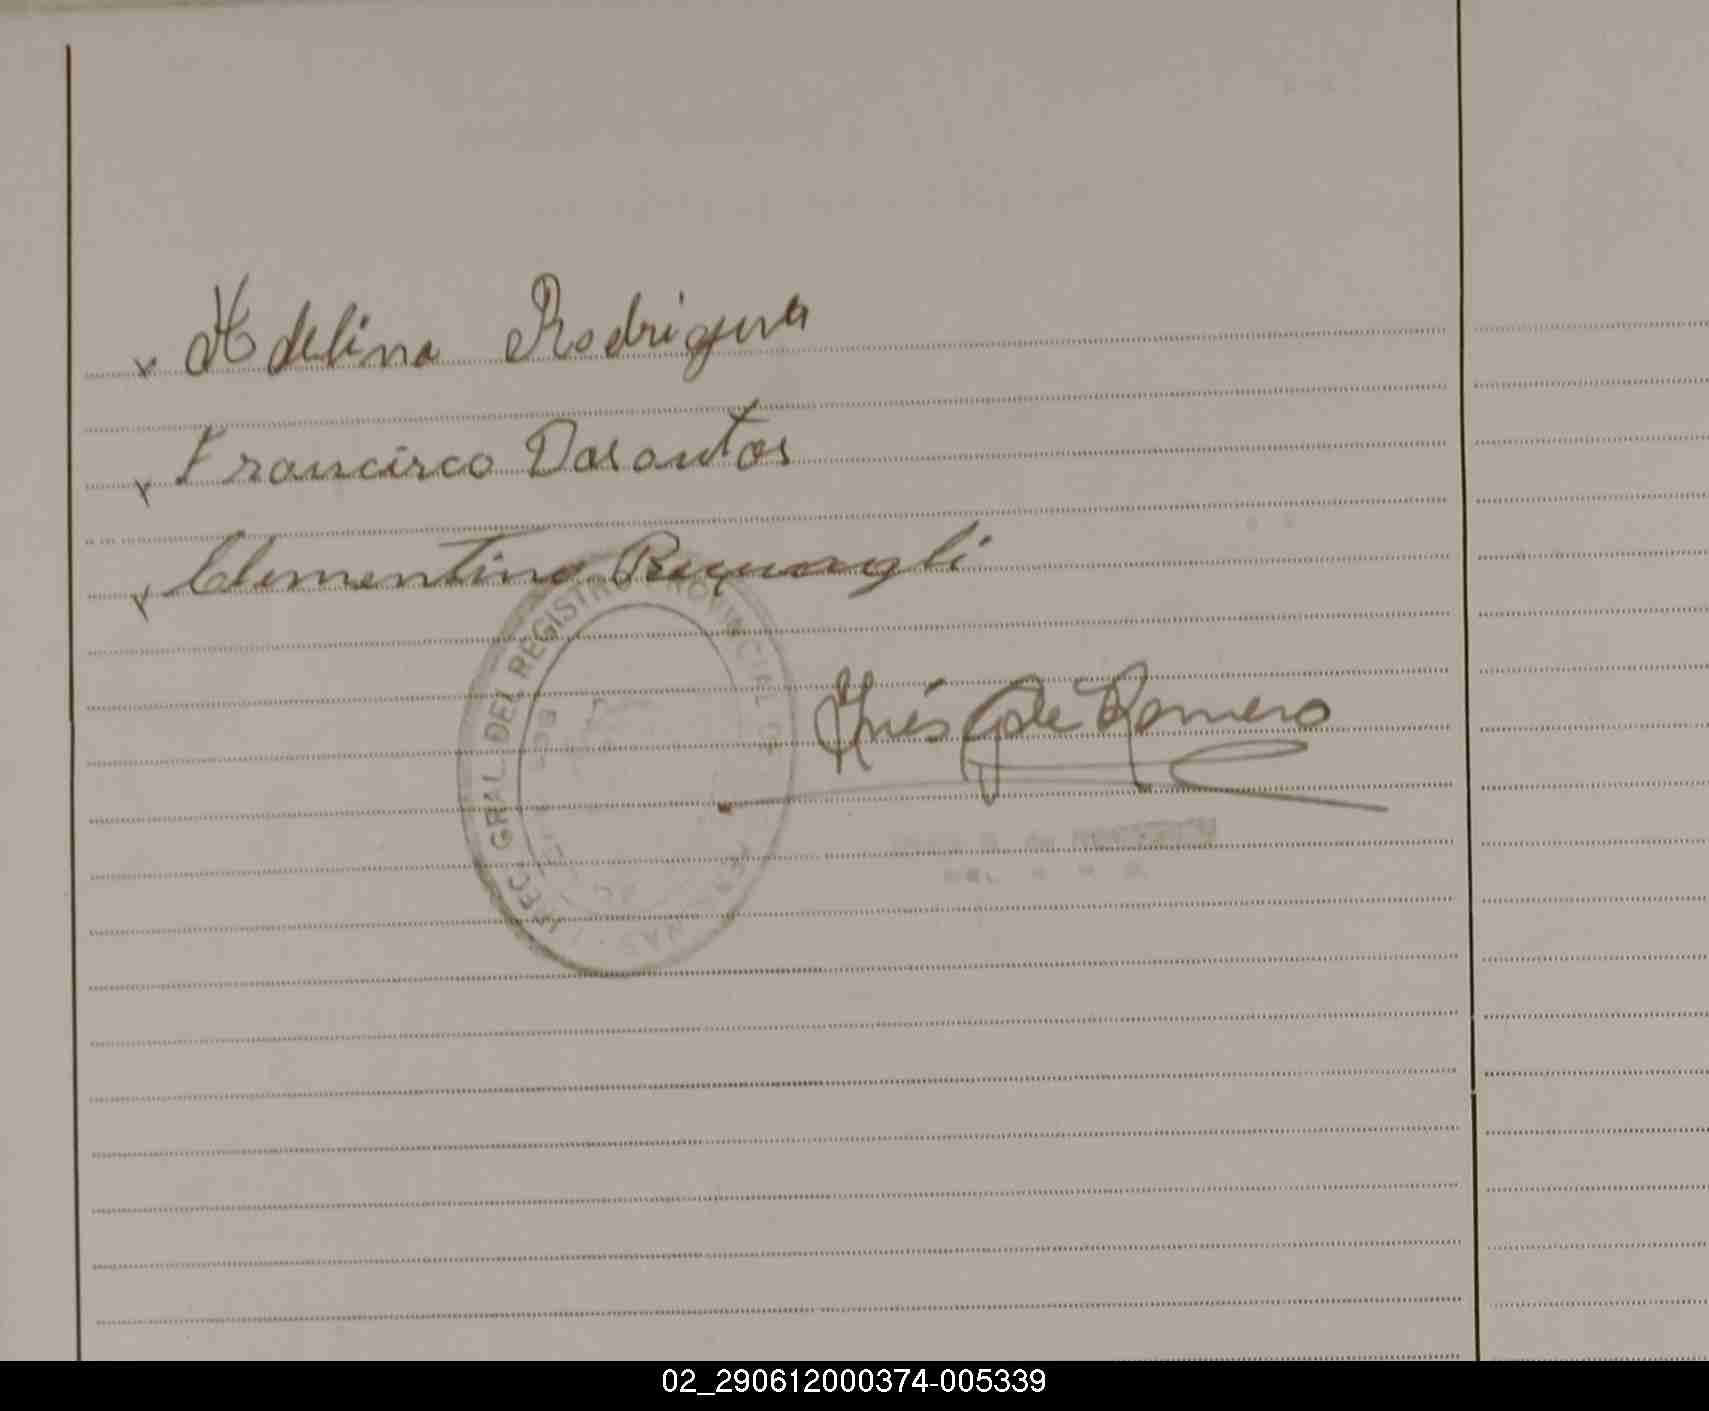 Adelina Rodriguez
Francisco Dasantos
Clementino
DIRECC. GRAL. DEL REGISTRO PROVINCIAL DE
Inés G de Romero
02_290612000374-005339